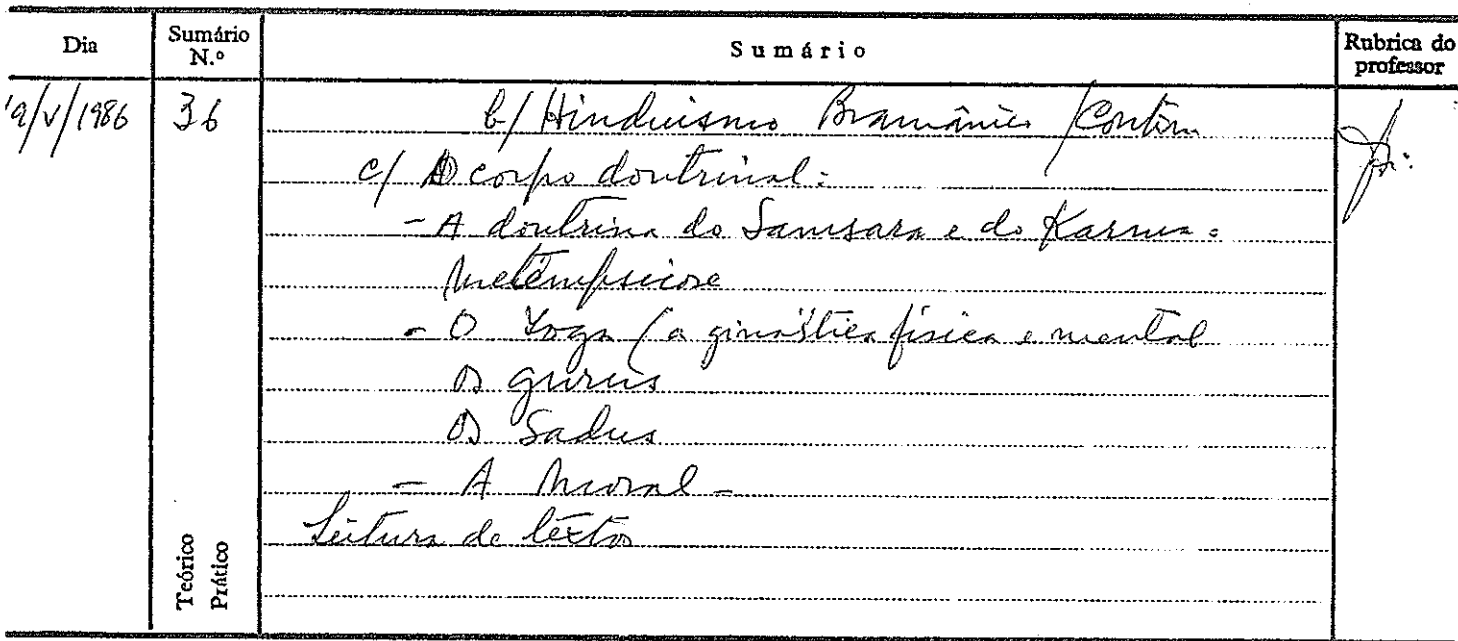 Dia Sumário N.º Sumário Rubrica do professor
9/V/1986 36 b/ Hinduismo Bramânico /Contin
c/ O corpo doutrinal:
- A doutrina do Samsara e do Karma =
Metempsicose
- O Yoga (a ginástica física e mental
Os gurus
Os Sadus
- A Moral -
Leitura de textos
Teórico
Prático